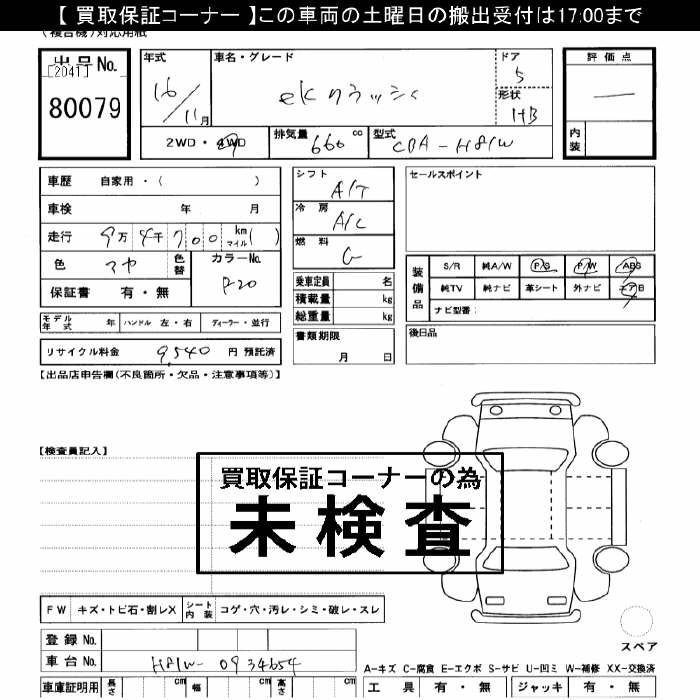 【 買取保証コーナー 】この車両の土曜日の搬出受付は17:00まで
(複合機)対応用紙
出品No.
[2041]
80079
年式
16/11月
車名・グレード
ekクラッシィ
ドア
5
形状
HB
評価点
—
内装
2WD・4WD
排気量 660 cc
型式 CBA-H81W
車歴 自家用・( )
車検 年 月
走行 9万4千700 km マイル( )
色
色替
カラーNo.
P20
保証書 有・無
シフト A/T
冷房 A/C
燃料 G
乗車定員 名
積載量 kg
総重量 kg
セールスポイント
装備品
S/R 純A/W P/S P/W ABS
純TV 純ナビ 革シート 外ナビ エアB
ナビ型番:
モデル年式 年 ハンドル 左・右 ディーラー・並行
リサイクル料金 9,540 円 預託済
書類期限
月 日
後日品
【出品店申告欄(不良箇所・欠品・注意事項等)】
【検査員記入】
買取保証コーナーの為
未検査
FW キズ・トビ石・割レX シート内装 コゲ・穴・汚レ・シミ・破レ・スレ
登録No.
車台No. H81W-0934654
スペア
A-キズ C-腐食 E-エクボ S-サビ U-凹ミ W-補修 XX-交換済
車庫証明用 長さ cm 幅 cm 高さ cm
工具 有・無 ジャッキ 有・無